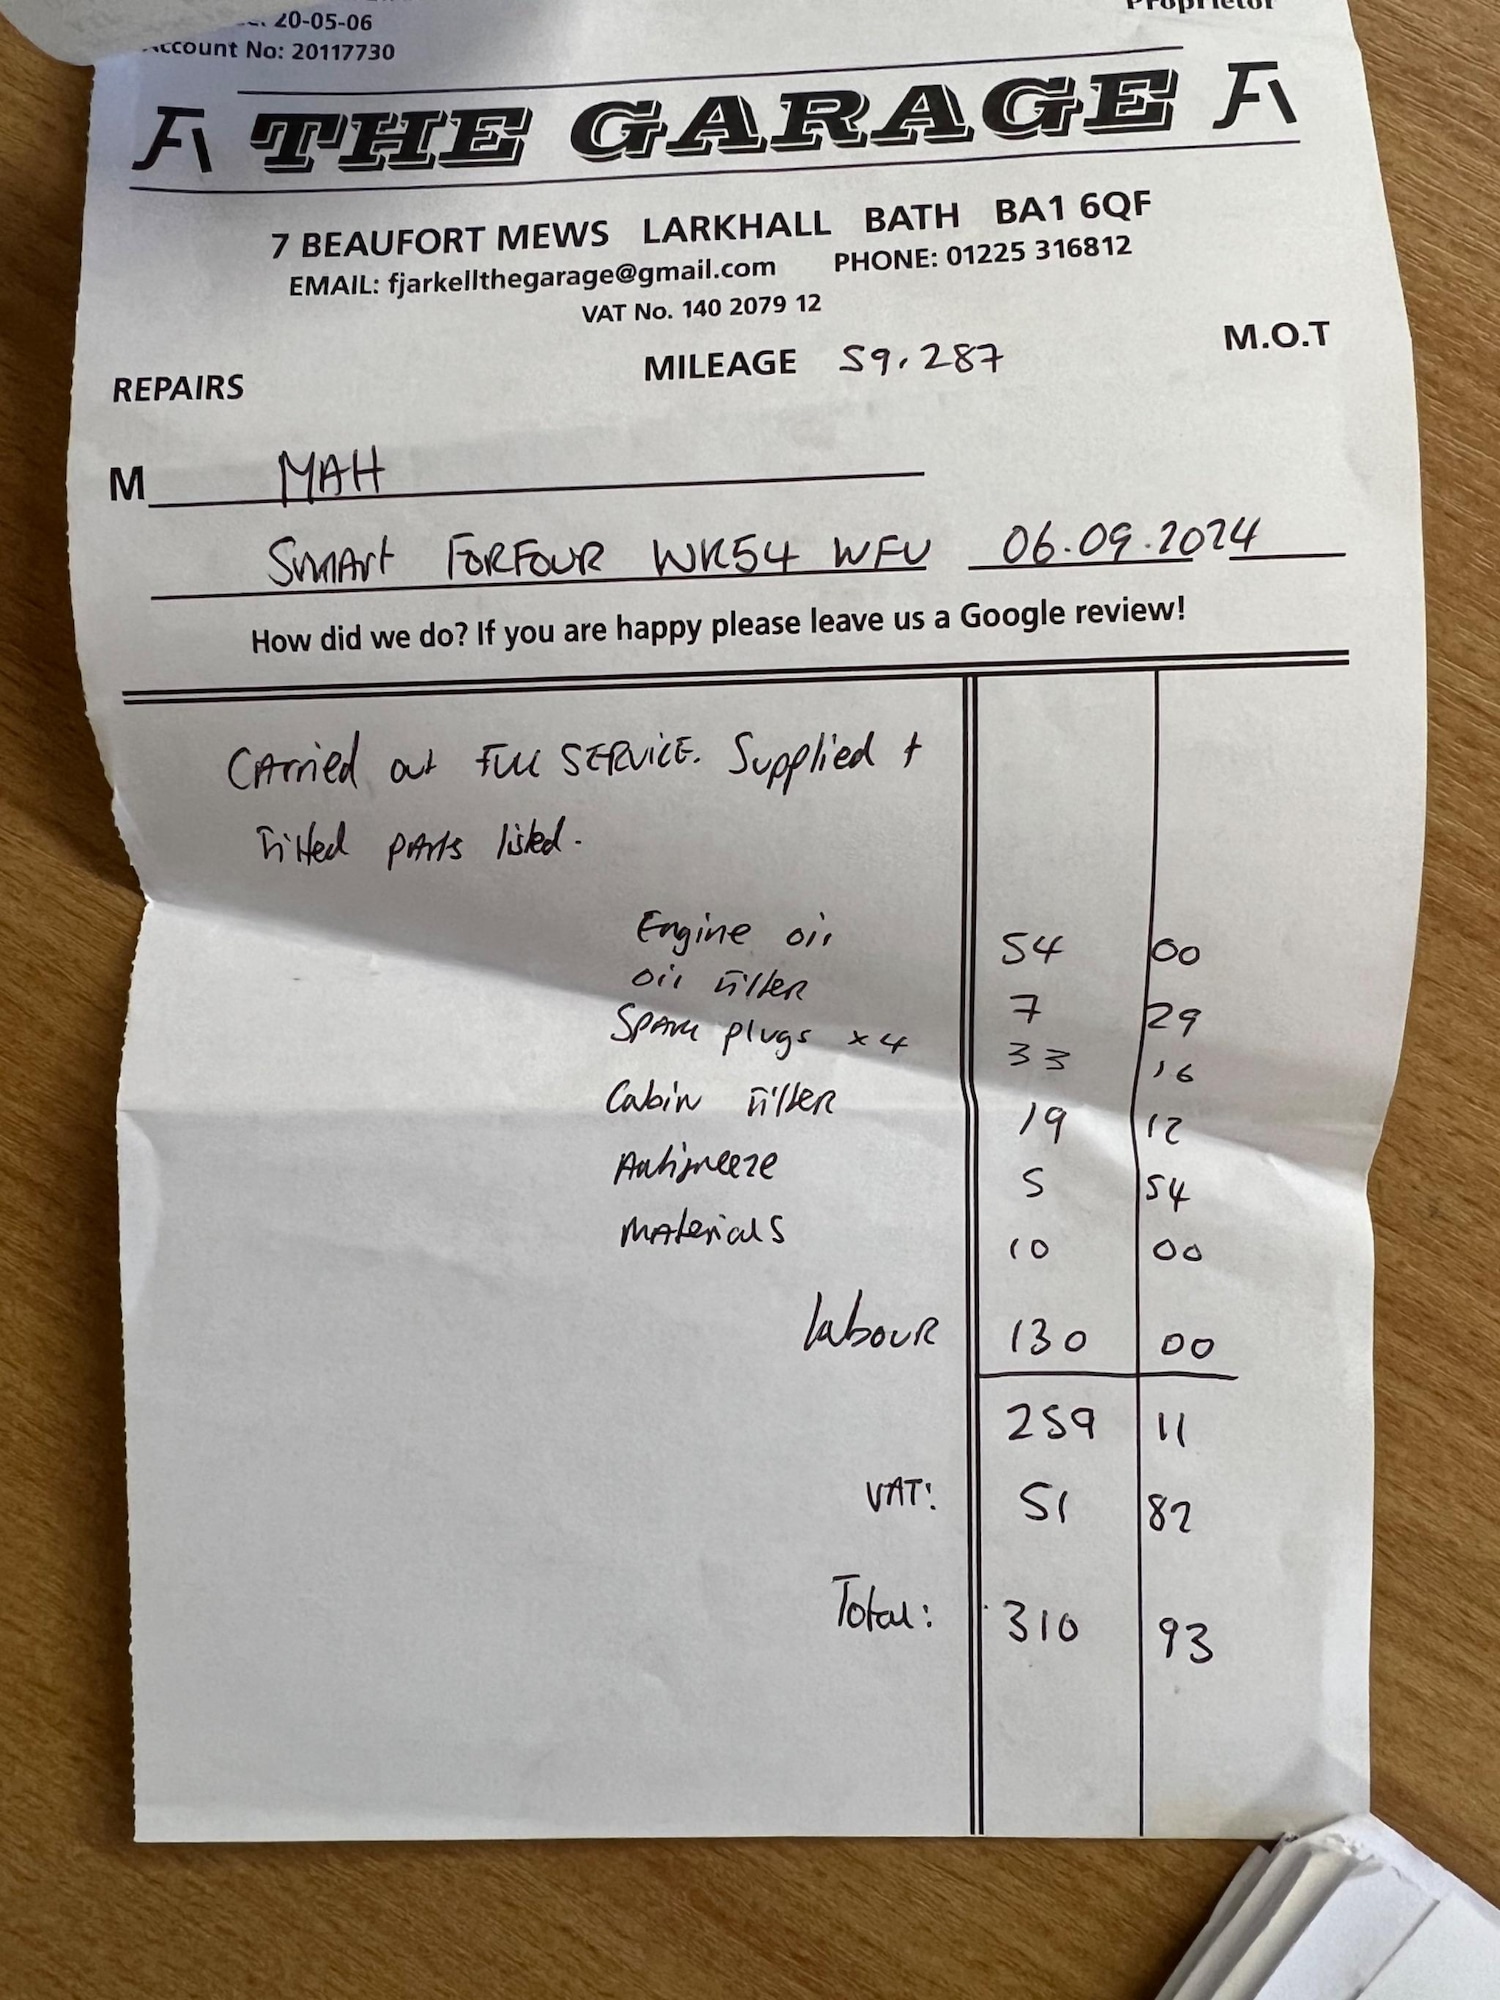 20-05-06
Account No: 20117730
Proprietor
THE GARAGE
7 BEAUFORT MEWS LARKHALL BATH BA1 6QF
EMAIL: fjarkellthegarage@gmail.com PHONE: 01225 316812
VAT No. 140 2079 12
REPAIRS MILEAGE 59,287 M.O.T
M MAH
Smart FORFOUR WK54 WFU 06.09.2024
How did we do? If you are happy please leave us a Google review!
Carried out Full SERVICE. Supplied +
Fitted parts listed.
Engine oil 54 00
oil Filter 7 29
Spark plugs x4 33 16
Cabin Filter 19 12
Antifreeze 5 54
Materials 10 00
Labour 130 00
259 11
VAT: 51 82
Total: 310 93